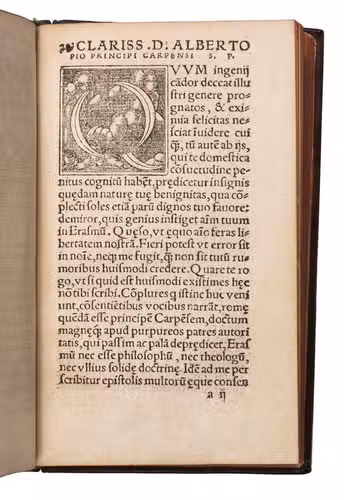 ❧CLARISS .D. ALBERTO
PIO PRINCIPI CARPENSI S. P.
QVVM ingenij
cādor deceat illu
stri genere pro
gnatos, & exi-
mia felicitas ne-
sciat ĩuidere cui
q̃, tū autē ab ijs,
qui te domestica
cōsuetudine pe-
nitus cognitū habēt, p̨dicetur insignis
quędam naturę tuę benignitas, qua cō-
plecti soles etiā parū dignos tuo fauore:
demiror, quis genius instiget aīm tuum
in Erasmū. Quęso, vt equo aīo feras li-
bertatem nostrā. Fieri potest vt error sit
in noīe, neq; me fugit, q̄ non sit tutū ru-
moribus huismodi credere. Quare te ro
go, vt si quid est huismodi existimes hęc
no tibi scribi. Cōplures q̃ istinc huc veni
unt, cōsentiētibus vocibus narrāt, romę
quēdā esse principē Carpēsem, doctum
magnęq; apud purpureos patres autori
tatis, qui passim ac palā deprędicet, Eras
mū nec esse philosophū, nec theologū,
nec vllius solidę doctrinę. Idē ad me per
scribitur epistolis multorū ęque consen
a ij